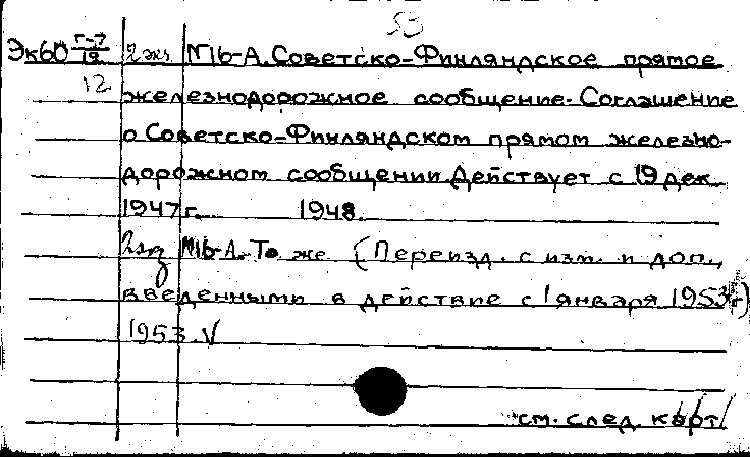 53
Эк60 Г-7/19 2 экз. №16-А. Советско-Финляндское прямое
12 железнодорожное сообщение. Соглашение
о Советско-Финляндском прямом железно-
дорожном сообщении. Действует с 19 дек.
1947 г. 1948.
№16-А. То же (Переизд. с изм. и доп.,
введенными в действие с 1 января 1953 г.)
1953. V
см. след. карт